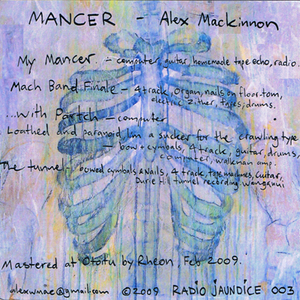 MANCER - Alex Mackinnon
My Mancer. - computer, guitar, homemade tape echo, radio.
Mach Band Finale - 4track, Organ, nails on floor-tom,
electric zither, tapes, drums.
...with Partch - computer
Loathed and paranoid Im a sucker for the crawling type
- bow + cymbals, 4 track, guitar, drums,
computer, walkman amp.
The tunnel - bowed cymbals & nails, 4 track, tape machines, guitar,
Durie Hill tunnel recording Wanganui
Mastered at Ototu by Rheon, Feb 2009.
@gmail.com ©2009 RADIO JAUNDICE 003